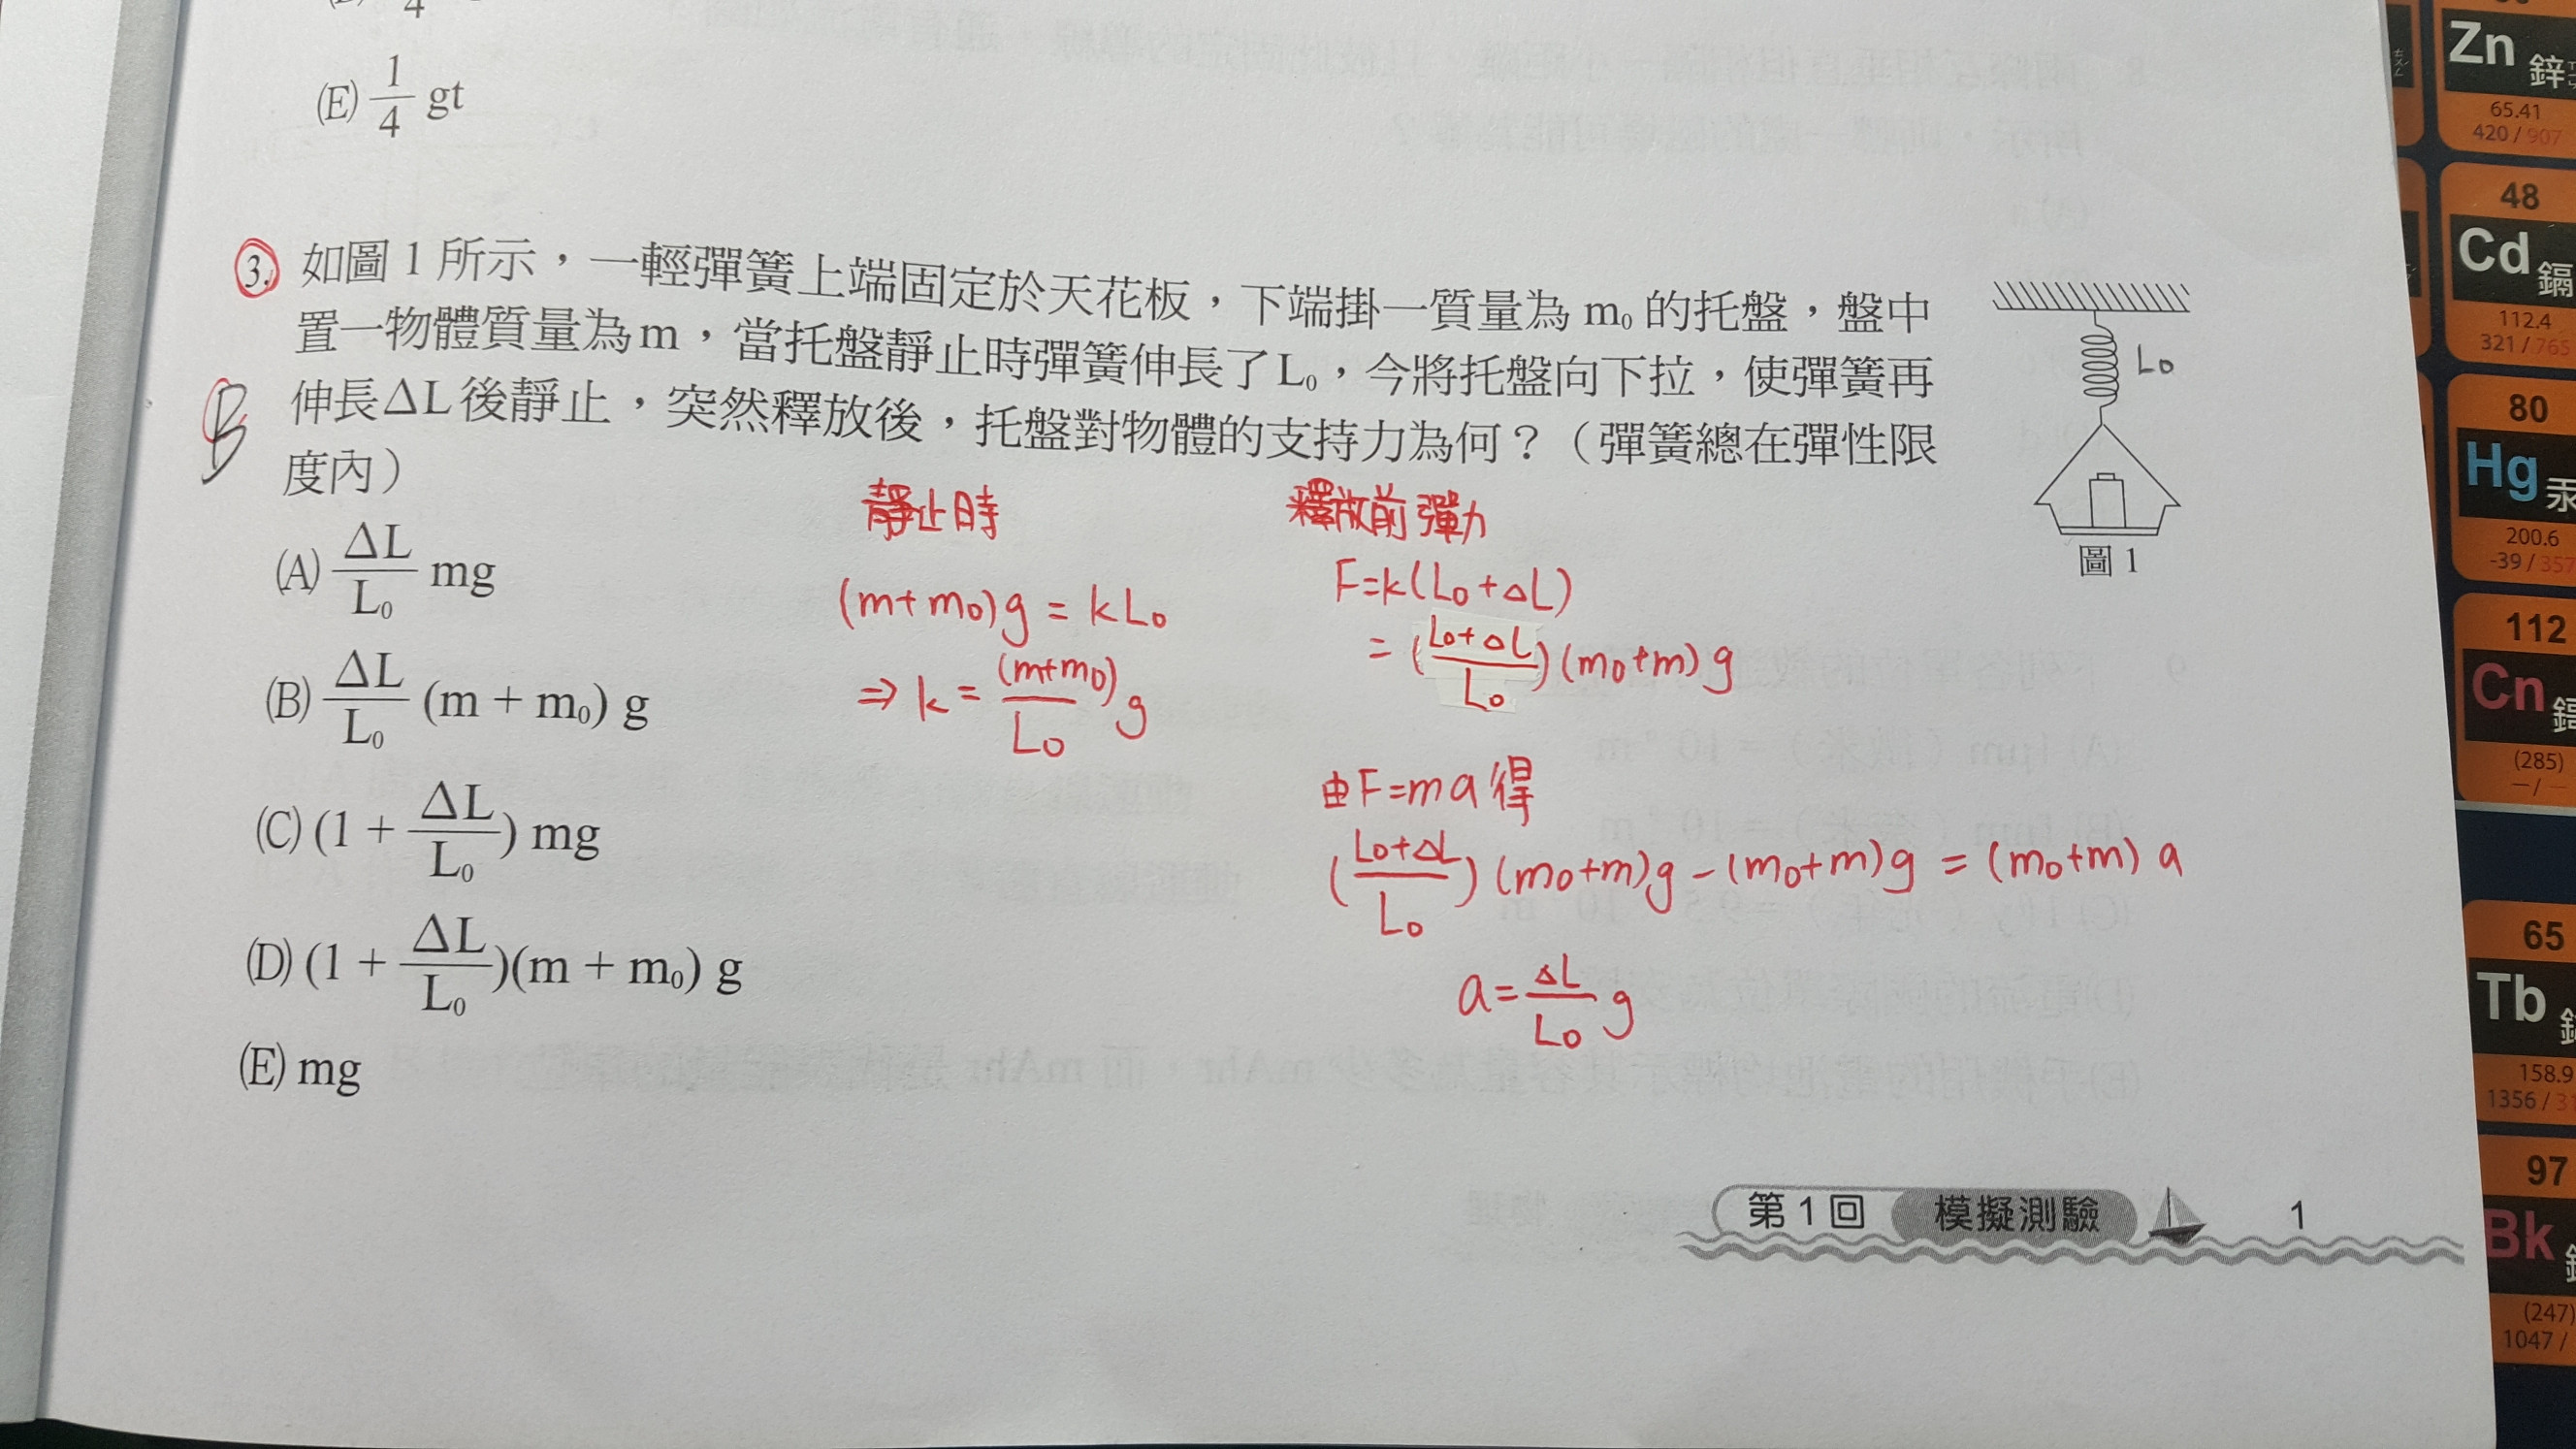 4
(E) 1/4 gt
3. 如圖1所示，一輕彈簧上端固定於天花板，下端掛一質量為 m₀ 的托盤，盤中
置一物體質量為m，當托盤靜止時彈簧伸長了L₀，今將托盤向下拉，使彈簧再
伸長ΔL後靜止，突然釋放後，托盤對物體的支持力為何？（彈簧總在彈性限
度內）
B
L₀
圖1
(A) ΔL/L₀ mg
(B) ΔL/L₀ (m + m₀) g
(C) (1 + ΔL/L₀) mg
(D) (1 + ΔL/L₀)(m + m₀) g
(E) mg
靜止時
(m+m₀)g = kL₀
⇒ k = (m+m₀)/L₀ g
釋放前彈力
F=k(L₀+ΔL)
= (L₀+ΔL/L₀)(m₀+m) g
由F=ma得
(L₀+ΔL/L₀)(m₀+m)g-(m₀+m)g = (m₀+m) a
a= ΔL/L₀ g
第1回 模擬測驗 1
Zn 鋅
65.41
420 / 907
48
Cd 鎘
112.4
321 / 765
80
Hg 汞
200.6
-39 / 357
112
Cn
(285)
—/ —
65
Tb
158.9
1356 / 31
97
Bk
(247)
1047 /